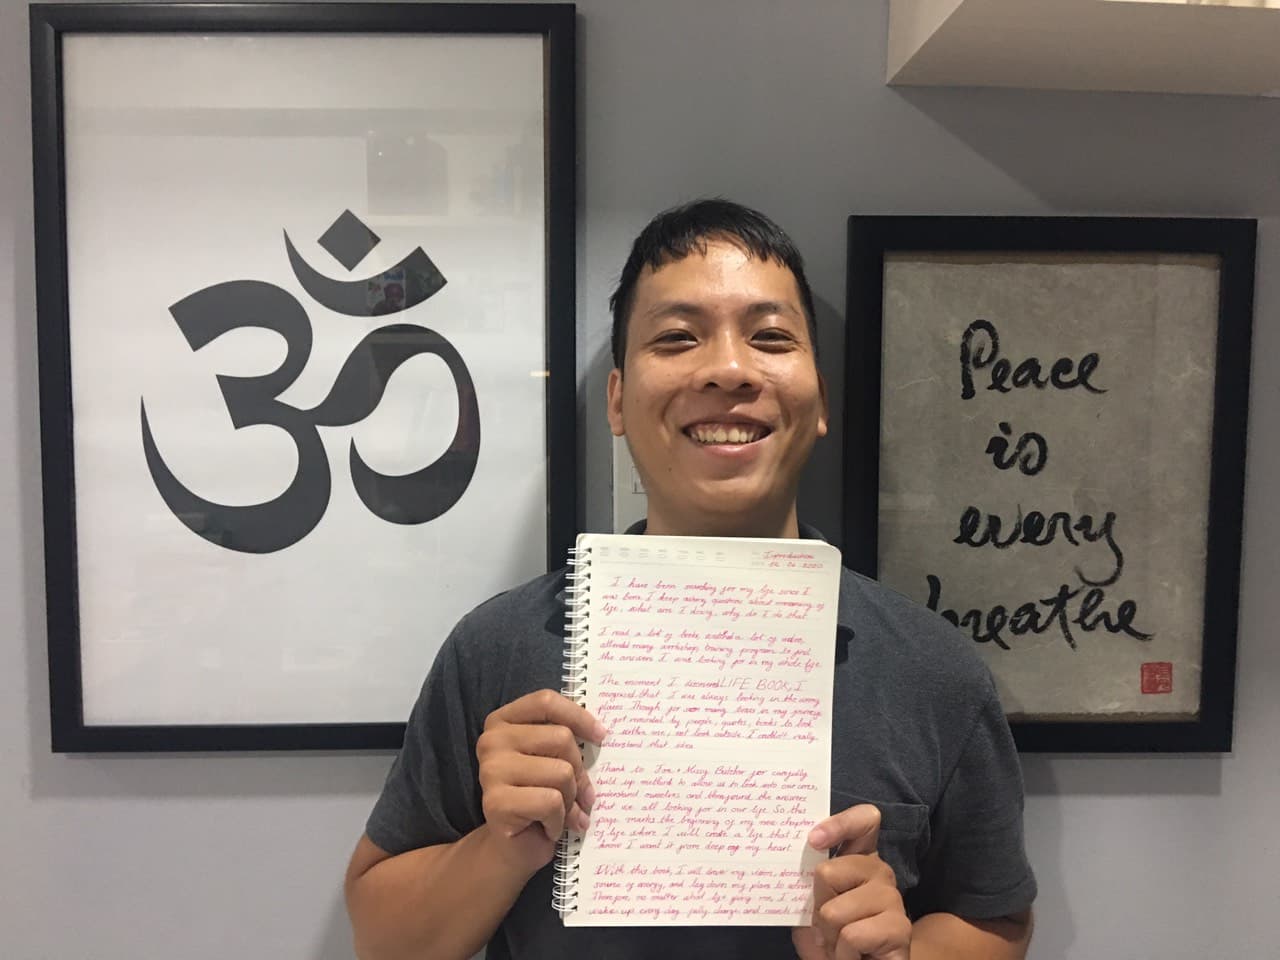 ॐ
Peace
is
every
breathe
Introduction
06 2020
I have been searching for my life since I
was born. I keep asking questions about meaning of
life, what am I doing, why do I do that.
I read a lot of books, watched a lot of videos,
attended many workshops, training programs to find
the answers I was looking for in my whole life.
The moment I discovered LIFE BOOK, I
recognized that I was always looking in the wrong
places. Though for many times in my journey
I got reminded by people, quotes, books to look
within me, not look outside I couldn't really
understand that idea.
Thank to Jon + Missy Butcher for carefully
build up method to allow us to look into our cores,
understand ourselves and then found the answers
that we all looking for in our life. So this
page marks the beginning of my new chapters
of life where I will create a life that I
know I want it from deep my heart.
With this book, I will draw my vision,
source of energy, and lay down my plans to
Therefore, no matter what life giving me, I
wake up every day fully charge and